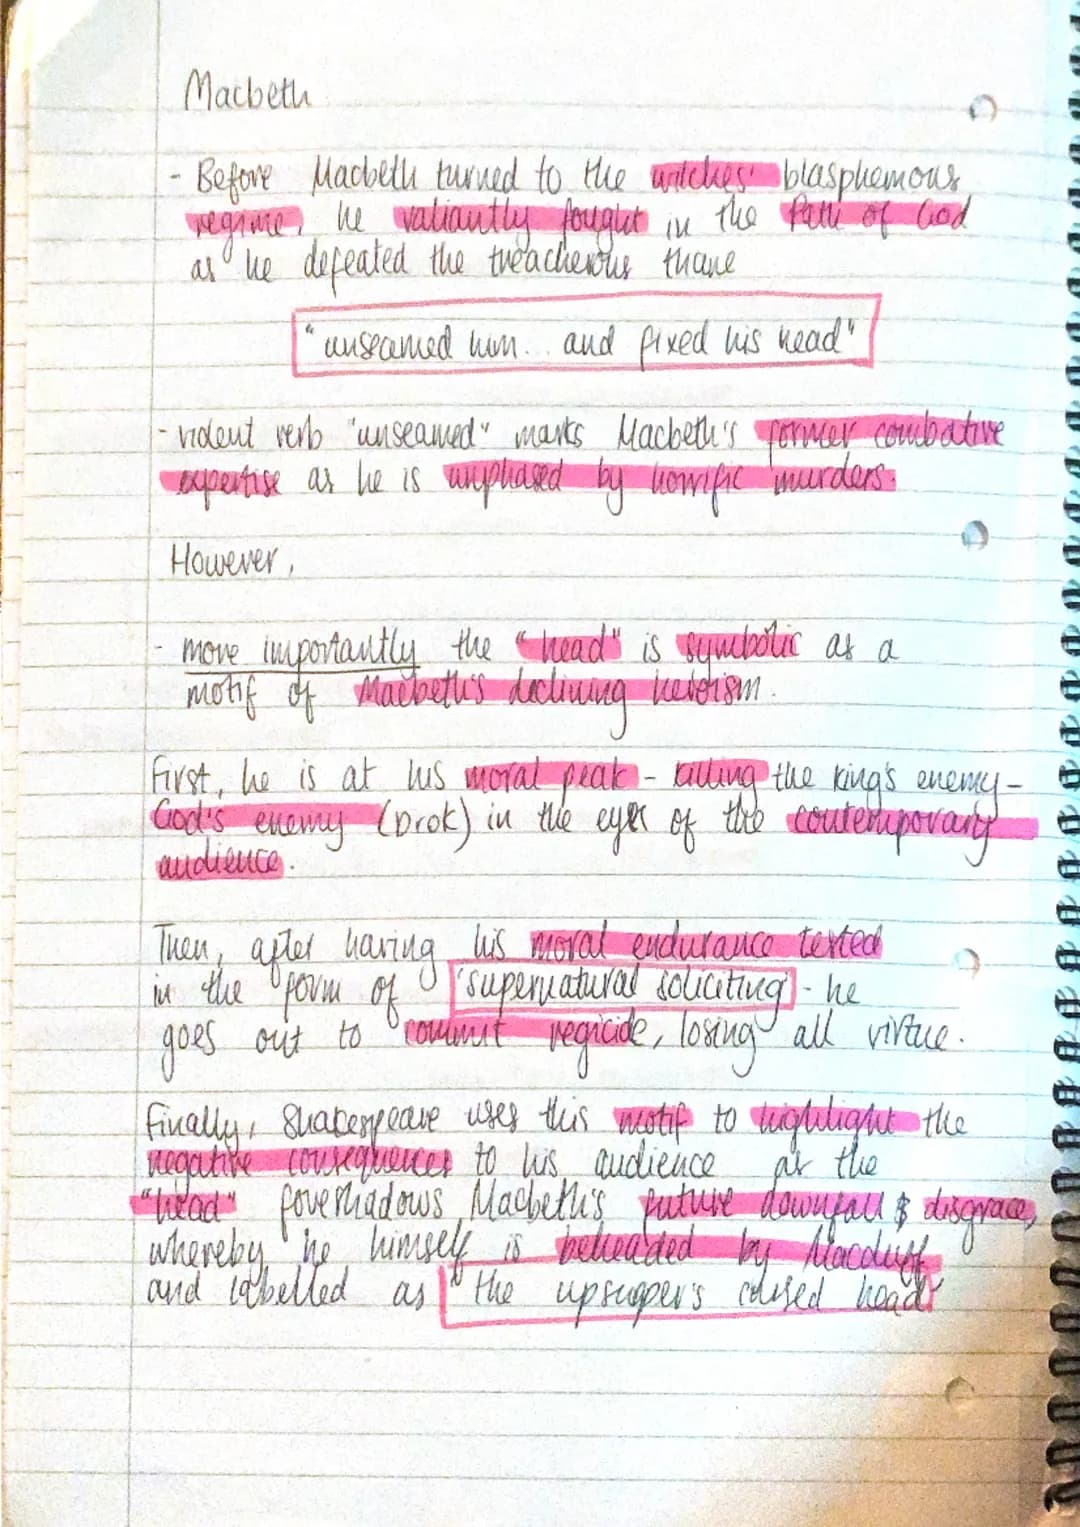 Macbeth
- Before Macbeth turned to the witches' blasphemous
regime, he valiantly fought in the Path of God
as he defeated the treacherous thane
"unseamed him... and fixed his head"
- violent verb "unseamed" marks Macbeth's former combative
expertise as he is unphased by horrific murders.
However,
- more importantly the "head" is symbolic as a
motif of Macbeth's declining heroism.
First, he is at his moral peak - killing the king's enemy -
God's enemy (Drok) in the eyes of the contemporary
audience.
Then, after having his moral endurance tested
in the form of 'supernatural soliciting' - he
goes out to commit regicide, losing all virtue.
Finally, Shakespeare uses this motif to highlight the
negative consequences to his audience as the
"head" foreshadows Macbeth's future downfall & disgrace,
whereby he himself is beheaded by Macduff
and labelled as "the upsurper's cursed head"